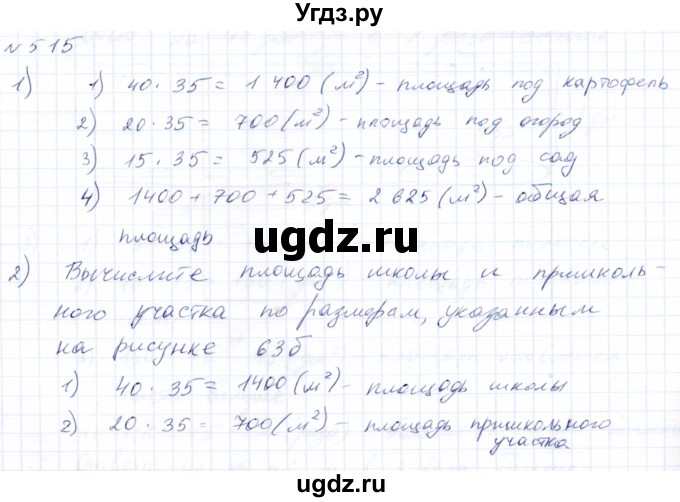 Угдз.ру
№515
1) 1) 40 · 35 = 1 400 (м²) - площадь под картофель
2) 20 · 35 = 700 (м²) - площадь под огород
3) 15 · 35 = 525 (м²) - площадь под сад
4) 1400 + 700 + 525 = 2 625 (м²) - общая
площадь
ugdz.ru
2) Вычислите площадь школы и пришколь-
ного участка по размерам, указанным
на рисунке 63б
1) 40 · 35 = 1400 (м²) - площадь школы
2) 20 · 35 = 700 (м²) - площадь пришкольного
участка
ugdz.ru